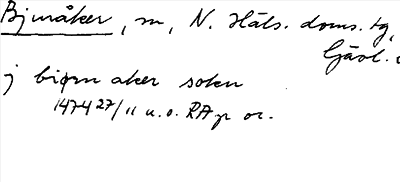 Bjuråker, sn, N. Häls. doms. tg,
Gävl.
j bigrn aker sokn
1474 27/11 u.o. RAp or.